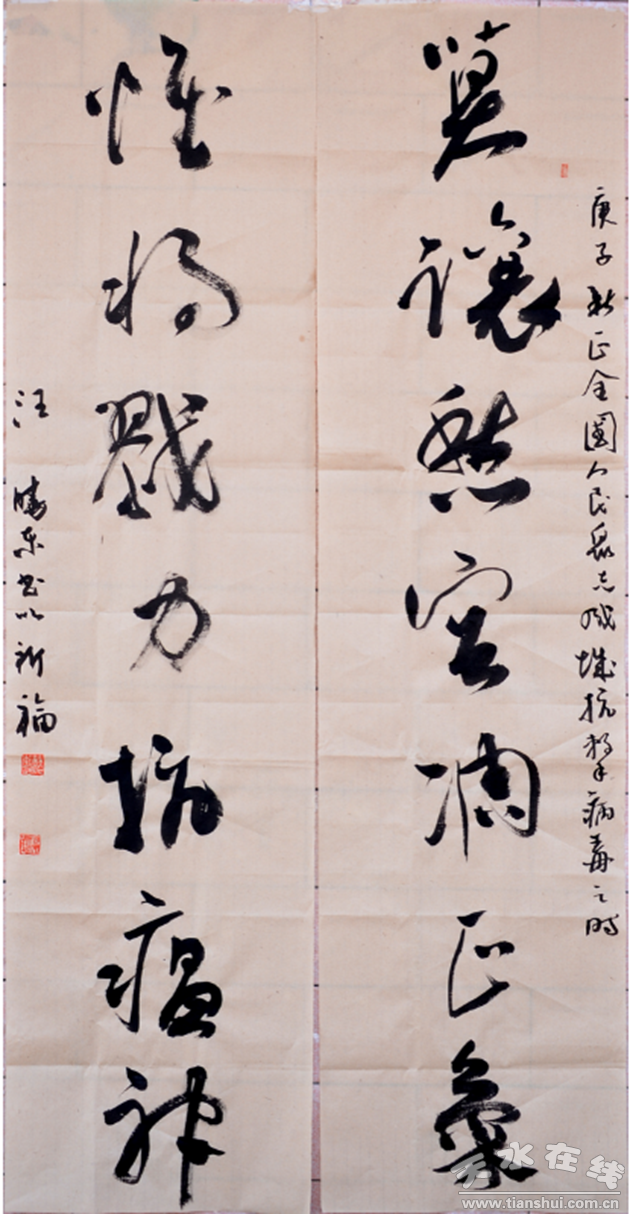 庚子新正全國人民眾志成城抗擊病毒之時
莫讓愁容凋正氣
惟將戮力抗瘟神
汪東書以祈福
天水在线
www.tianshui.com.cn